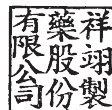 祥翊製
藥股份
有限公司